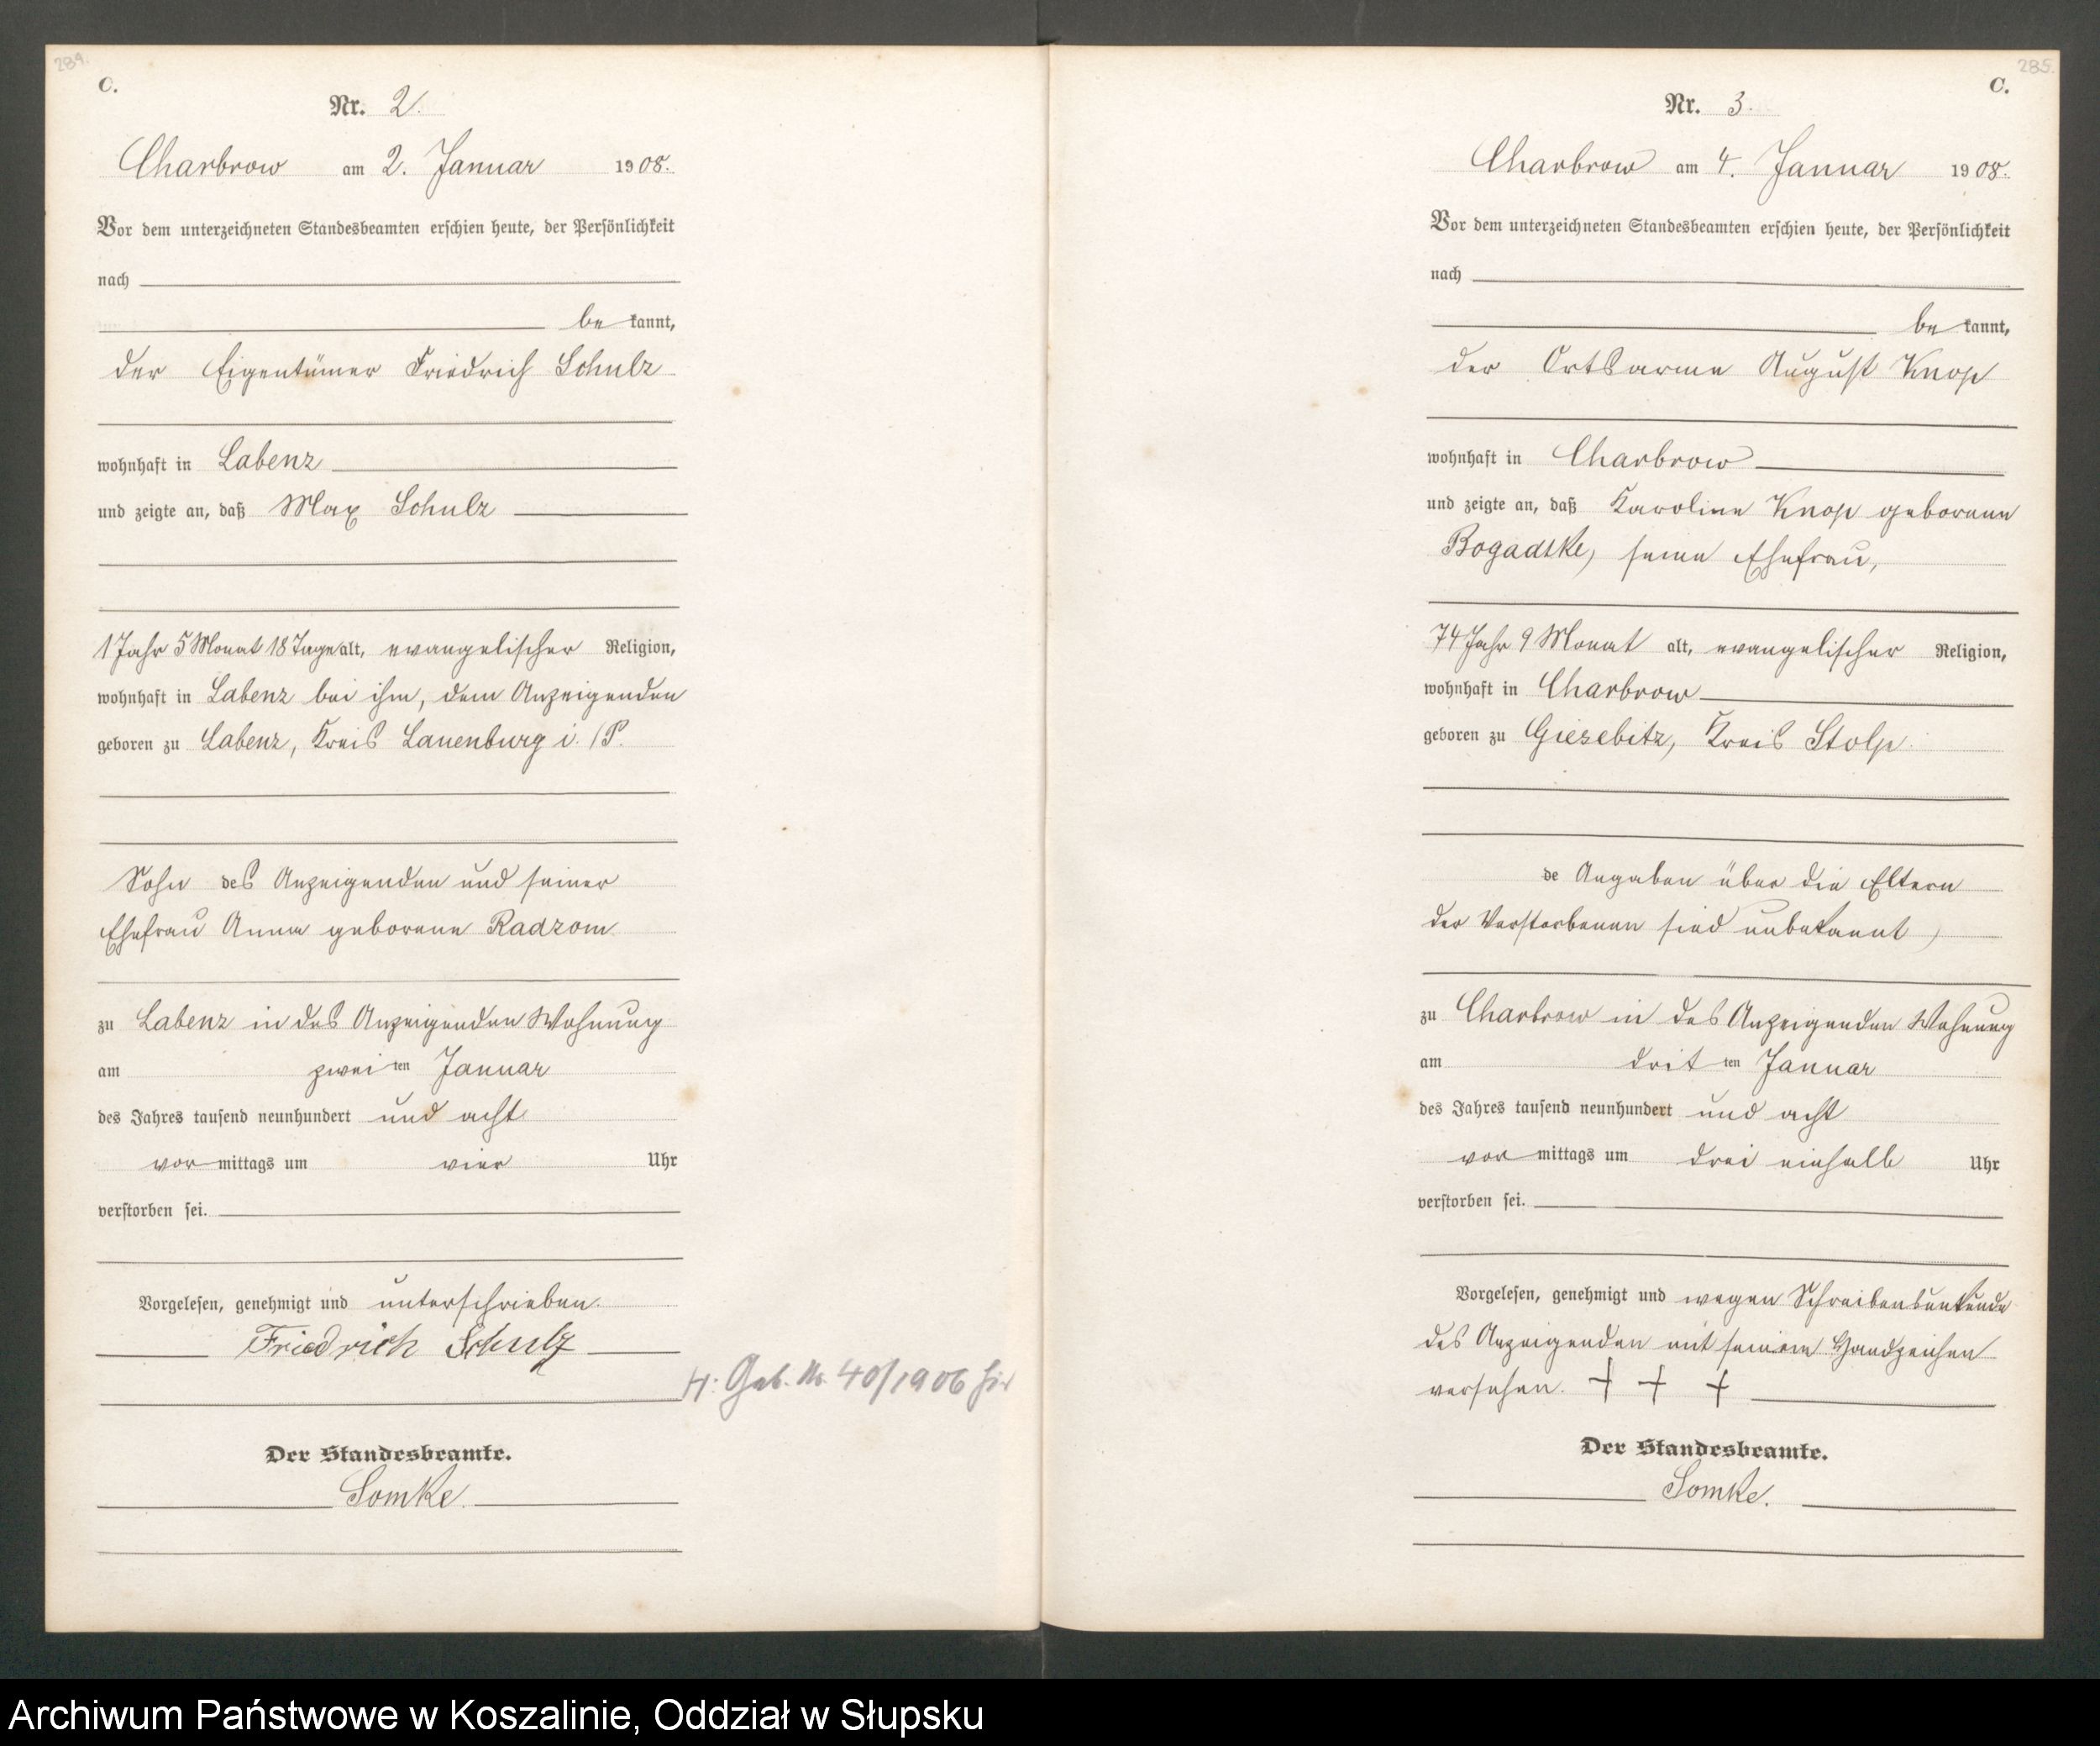 284.
C.
Nr. 2.
Charbrow am 2. Januar 1908.
Vor dem unterzeichneten Standesbeamten erschien heute, der Persönlichkeit
nach
be kannt,
der Eigentümer Friedrich Schulz
wohnhaft in Labenz
und zeigte an, daß Max Schulz
1 Jahr 5 Monat 18 Tage alt, evangelischer Religion,
wohnhaft in Labenz bei ihm, dem Anzeigenden
geboren zu Labenz, Kreis Lauenburg i./P.
Sohn des Anzeigenden und seiner
Ehefrau Anna geborene Radzom
zu Labenz in des Anzeigenden Wohnung
am zwei ten Januar
des Jahres tausend neunhundert und acht
vor mittags um vier Uhr
verstorben sei.
Vorgelesen, genehmigt und unterschrieben.
Friedrich Schulz
H: Geb. Nr. 40/1906 hier
Der Standesbeamte.
Somke.
285.
C.
Nr. 3.
Charbrow am 4. Januar 1908.
Vor dem unterzeichneten Standesbeamten erschien heute, der Persönlichkeit
nach
be kannt,
der Ortsarme August Knop
wohnhaft in Charbrow
und zeigte an, daß Karoline Knop geborene
Bogadtke, seine Ehefrau,
74 Jahr 9 Monat alt, evangelischer Religion,
wohnhaft in Charbrow
geboren zu Giesebitz, Kreis Stolp.
de Angaben über die Eltern
der Verstorbenen sind unbekannt
zu Charbrow in des Anzeigenden Wohnung
am drit ten Januar
des Jahres tausend neunhundert und acht
vor mittags um drei einhalb Uhr
verstorben sei.
Vorgelesen, genehmigt und wegen Schreibensunkunde
des Anzeigenden mit seinem Handzeichen
versehen. + + +
Der Standesbeamte.
Somke.
Archiwum Państwowe w Koszalinie, Oddział w Słupsku